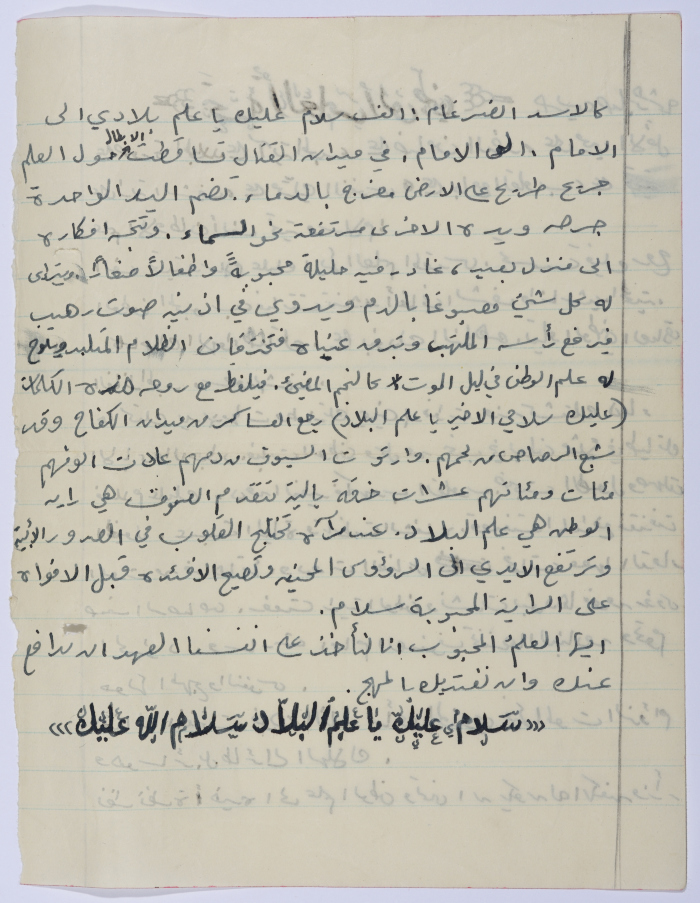 كالاسد الضرغام! الف سلام عليك يا علم بلادي الى
الامام، الى الامام، في ميدان القتال تساقطت الابطال حول العلم
جريح طريح على الارض مضرج بالدماء. تضم اليد الواحدة
جرحه ويده الاخرى مرتفعة نحو السماء. وتتجه افكاره
الى منزل بعيد، غادر فيه حليلة محبوبةً واطفالاً صغاراً. ويتراى
له كل شيء مصبوغا بالدم ويدوي في اذنيه صوت رهيب
فيرفع رأسه الملتهب وتبرق عيناه فتخترقان الظلام المتلبد ويلوح
له علم الوطن في ليل الموت كالنجم المضيء. فيلفظ مع روحه هذه الكلمات
(عليك سلامي الاخير يا علم البلاد) رجع العساكر من ميدان الكفاح وقد
شبع الرصاص من لحمهم. وارتوت السيوف من دمهم عادت الوفهم
مئات ومئاتهم عشرات خرقة بالية تتقدم الصفوف هي راية
الوطن هي علم البلاد. عند مرآه تختلج القلوب في الصدور الأبية
وترتفع الايدي الى الرؤوس المحنيه وتصيح الافئده قبل الافواه
على الراية المحبوبة سلام.
ايها العلمُ المحبوب انا لنأخذ على انفسنا العهد ان ندافع
عنك وان نفتديك بالمهج.
««سَلامٌ عليك يا علم البلاد سلام الله عليك»»